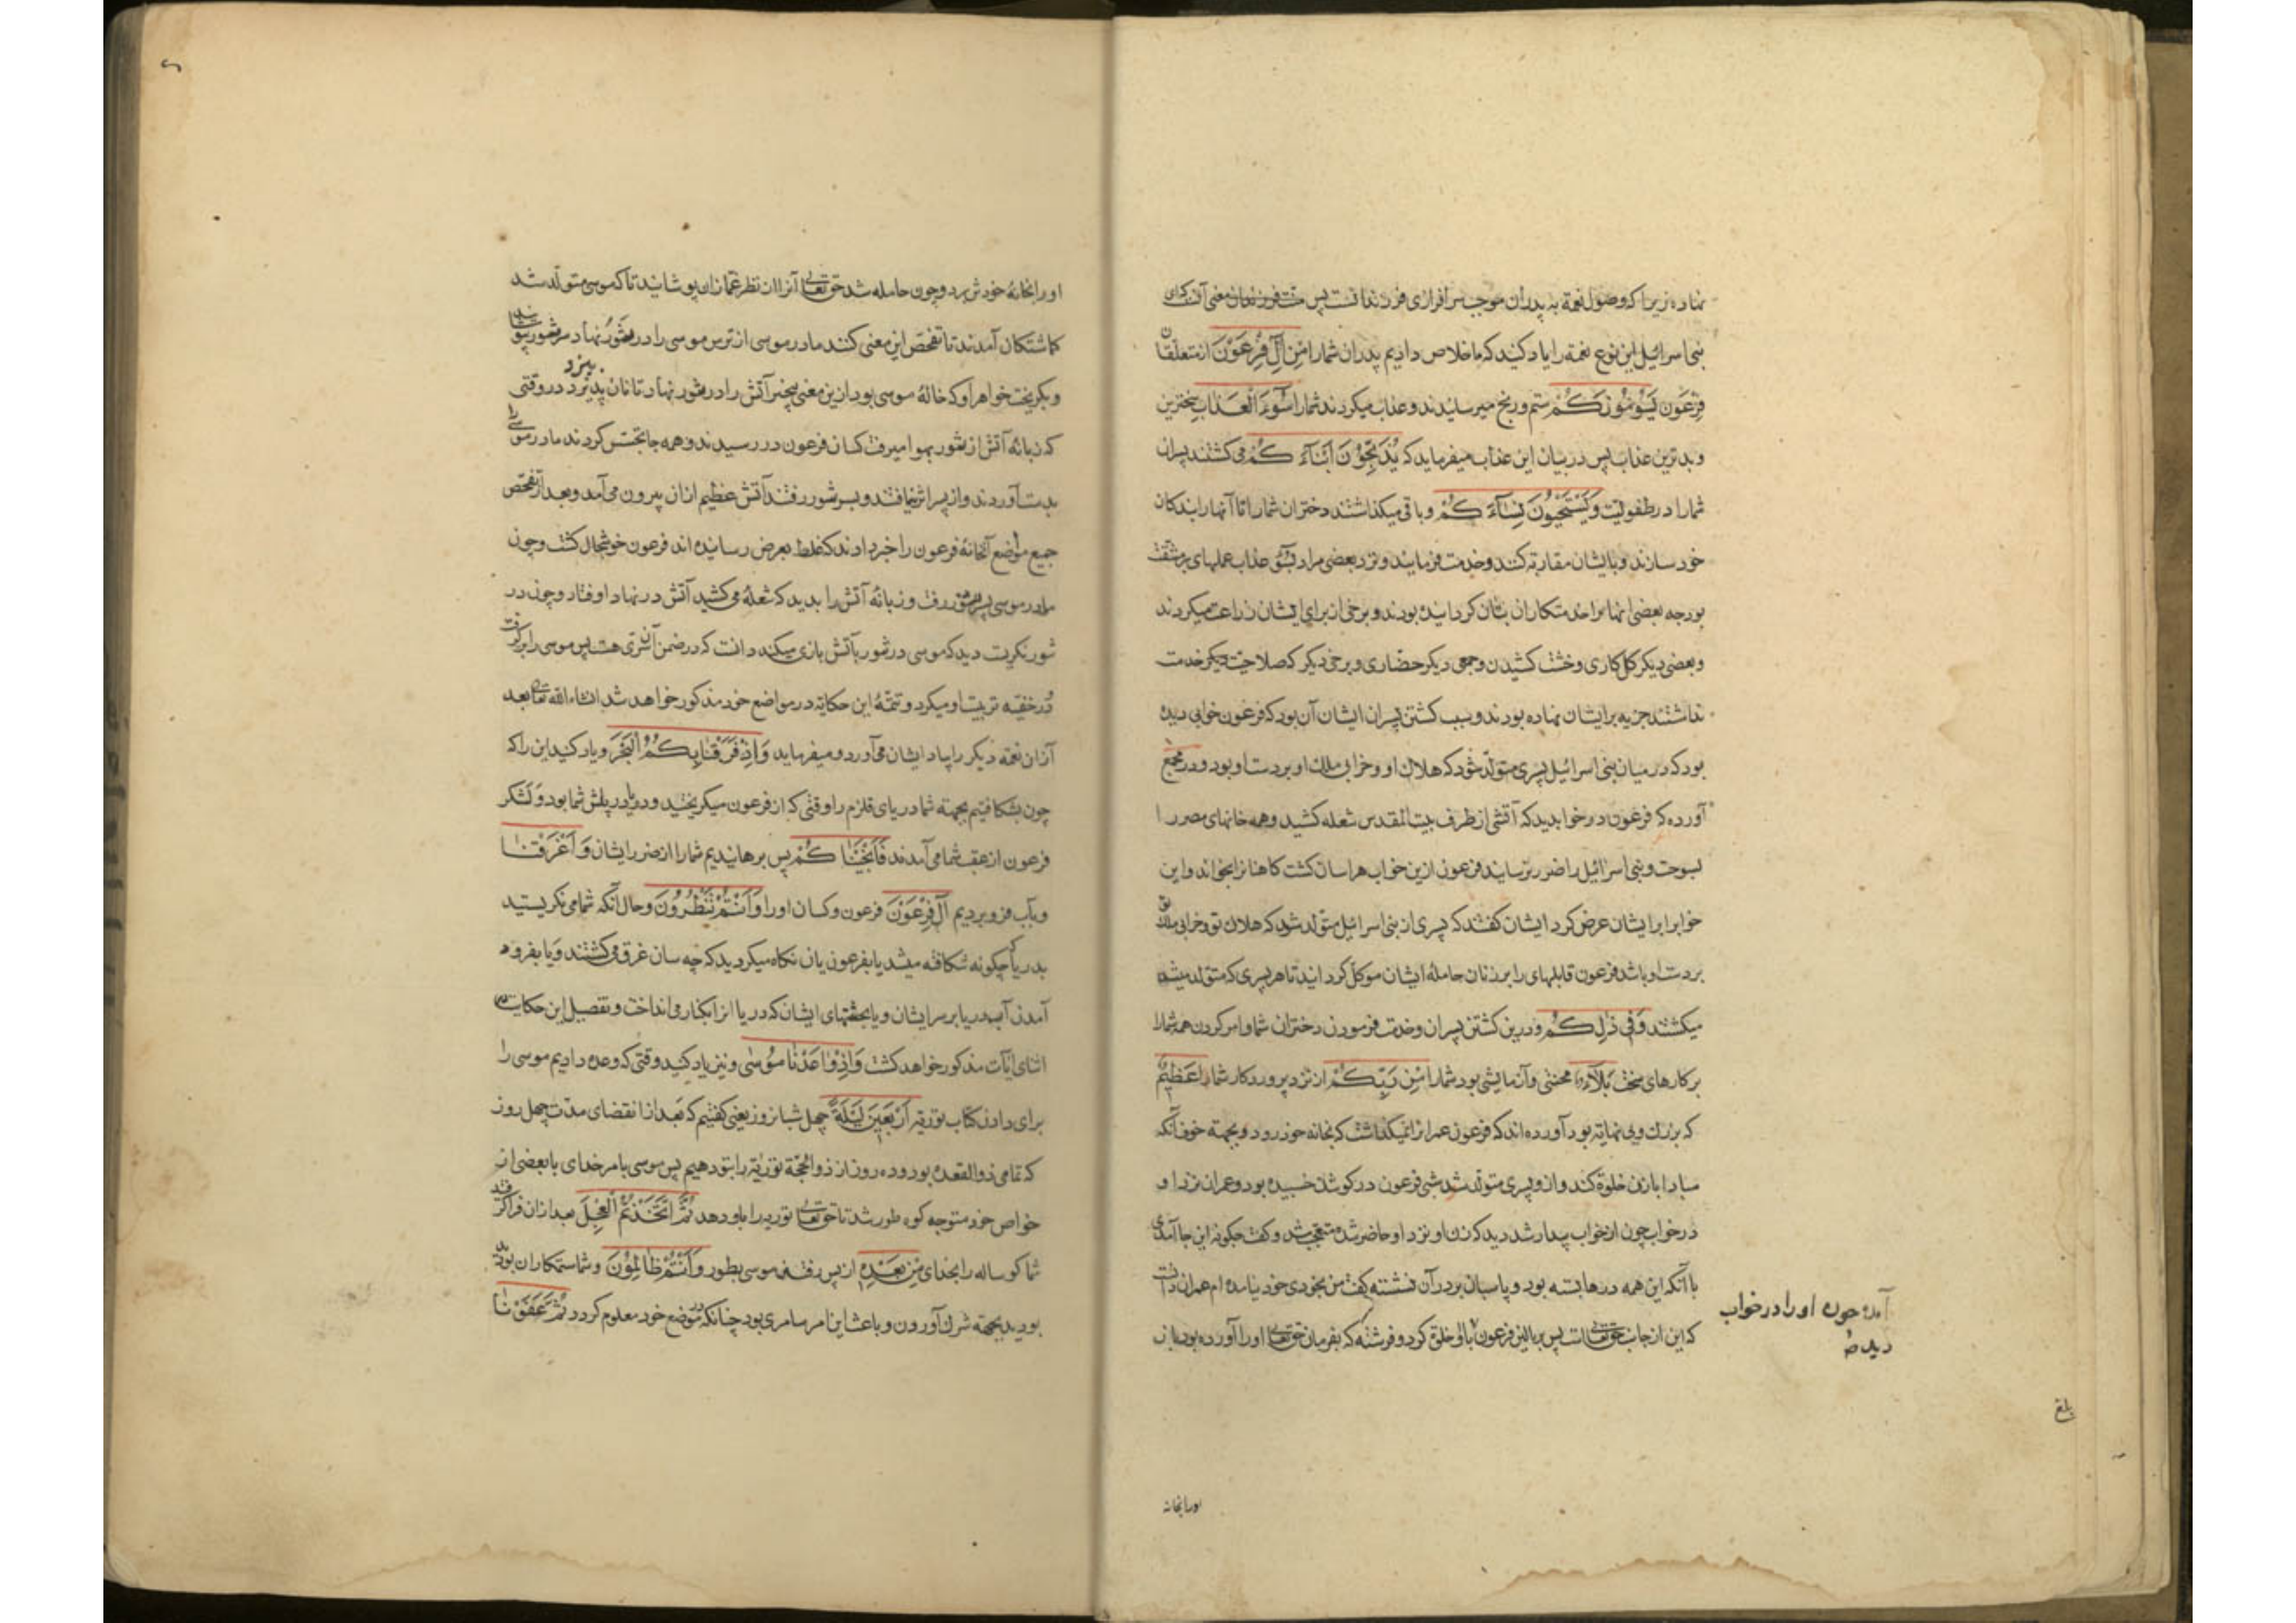 نهاده زیرا که وصول نعمة به پدران موجب سرافرازی فرزندانست پس معنی آنکه ای
بنی اسرائیل این نوع نعمة را یاد کنید که ما خلاص دادیم پدران شما را مِنْ آلِ فِرْعَوْنَ از متعلقان
فرعون يَسُومُونَكُمْ ستم و رنج میرسانیدند و عذاب میکردند شما را سُوءَ الْعَذَابِ سختترین
و بدترین عذاب پس در بیان این عذاب میفرماید که يُذَبِّحُونَ أَبْنَاءَكُمْ می کشتند پسران
شما را در طفولیت وَيَسْتَحْيُونَ نِسَاءَكُمْ و باقی میگذاشتند دختران شما را تا آنها را بندکان
خود سازند و با ایشان مقاربة کنند و خدمت فرمایند و نزد بعضی مراد بسوء عذاب عملهای پر مشقت
بود چه بعضی از
و بعضی دیکر کل کاری و خشت کشیدن و جمعی دیکر حضاری و برخی دیکر که صلاحیت دیکر خدمت
نداشتند جزیه بر ایشان نهاده بودند و سبب کشتن پسران ایشان آن بود که فرعون خوابی دیده
بود که در میان بنی اسرائیل پسری متولد شود که هلاک او و خرابی ملک او بر دست او بود و در مجمع
آورده که فرعون در خواب دید که آتشی از طرف بیت المقدس شعله کشید و همه خانهای مصر را
بسوخت و بنی اسرائیل را ضرر نرسانید فرعون ازین خواب هراسان کشت کاهنان را بخواند و این
خواب را بر ایشان عرض کرد ایشان کفتند که پسری از بنی اسرائیل متولد شود که هلاک تو و خرابی ملک تو
بر دست او باشد فرعون قابلهای را بر زنان حامله ایشان موکل کردانید تا هر پسری که متولد میشد
میکشتند وَفِي ذَٰلِكُمْ و درین کشتن پسران و خدمت فرمودن دختران شما و امر کردن همه شما را
بر کارهای سخت بَلَاءٌ محنتی و آزمایشی بود شما را مِنْ رَبِّكُمْ از نزد پروردکار شما عَظِيمٌ
که بزرک و بی نهایة بود آورده اند که فرعون عمران را نمیکذاشت که بخانه خود رود و بجهة خوف آنکه
مبادا با زن خلوة کند و ازو پسری متولد شد شبی فرعون در کوشک خسبیده بود و عمران نزد او
در خواب چون از خواب بیدار شد دید که زن او نزد او حاضر شده متعجب شد و کفت چکونه این جا آمدی
با آنکه این همه درها بسته بود و پاسبان بر در آن نشسته کفت من بخودی خود نیامده ام عمران دانست
که این از جانب حق تعالی است پس بر بالین فرعون با او خلوة کرد و فرشته که بفرمان حق تعالی او را آورده بود باز
او را در خواب
دیده
بلغ
او را بخانه
او را بخانه خودش برد و چون حامله شد حق تعالی آنرا از نظر غمازان پوشانید تا که موسی متولد شد
کماشتکان آمدند تا تفحص این معنی کنند مادر موسی از ترس موسی را در تنور نهاد سر تنور بپوشانید
و بکریخت خواهر او که خالهٔ موسی بود ازین معنی بیخبر آتش را در تنور نهاد تا نان بپزد در وقتی
که زبانه آتش از تنور بهوا میرفت کسان فرعون در رسیدند و همه جا تجسس کردند مادر موسی را
بدست آوردند و از پسر اثر نیافتند و بسر تنور رفتند آتش عظیم ازان بیرون می آمد و بعد از تفحص
جمیع مواضع آنخانه فرعون را خبر دادند که غلط بعرض رسانیده اند فرعون خوشحال کشت و چون
مادر موسی بسر تنور رفت و زبانه آتش را بدید که شعله می کشید آتش در نهاد او فتاد و چون در
تنور نکریست دید که موسی در تنور با آتش بازی میکند دانست که در ضمن آن سری هست پس موسی را بر کرفت
و در خفیه تربیت او میکرد و تتمهٔ این حکایة در مواضع خود مذکور خواهد شد انشاء الله تعالی بعد
ازان نعمة دیکر را بیاد ایشان می آورد و میفرماید وَإِذْ فَرَقْنَا بِكُمُ الْبَحْرَ و یاد کنید این را که
چون بشکافتیم بجهة شما دریای قلزم را وقتی که از فرعون میکریختید و دریا در پیش شما بود و لشکر
فرعون از عقب شما می آمدند فَأَنْجَيْنَاكُمْ پس برهانیدیم شما را از ضرر ایشان وَأَغْرَقْنَا
و بآب فرو بردیم آلَ فِرْعَوْنَ فرعون و کسان او را وَأَنْتُمْ تَنْظُرُونَ و حال آنکه شما می نکریستید
بدریا که چکونه شکافته میشد یا بفرعونیان نکاه میکردید که چه سان غرق می کشتند و یا بفرود
آمدن آب دریا بر سر ایشان و یا بجثتهای ایشان که دریا انرا بکنار می انداخت و تفصیل این حکایت در
اثنای آیات مذکور خواهد کشت وَإِذْ وَاعَدْنَا مُوسَىٰ و نیز یاد کنید وقتی که وعده دادیم موسی را
برای دادن کتاب توریة أَرْبَعِينَ لَيْلَةً چهل شبانروز یعنی کفتیم که بعد از انقضای مدت چهل روز
که تمامی ذو القعده بود و ده روز از ذو الحجة توریة را بتو دهیم پس موسی بامر خدای با بعضی از
خواص خود متوجه کوه طور شد تا حق تعالی توریه را باو دهد ثُمَّ اتَّخَذْتُمُ الْعِجْلَ بعد ازان فرا کرفتید
شما کوساله را بخدای مِنْ بَعْدِهِ از پس رفتن موسی بطور وَأَنْتُمْ ظَالِمُونَ و شما ستمکاران بودید
بودید بجهة شرک آوردن و باعث این امر سامری بود چنانکه در موضع خود معلوم کردد ثُمَّ عَفَوْنَا